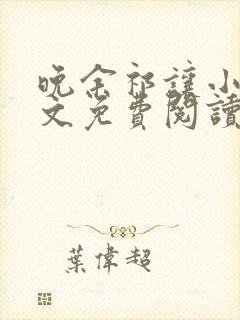 晚余祁讓小
文免費閱讀
葉偉超